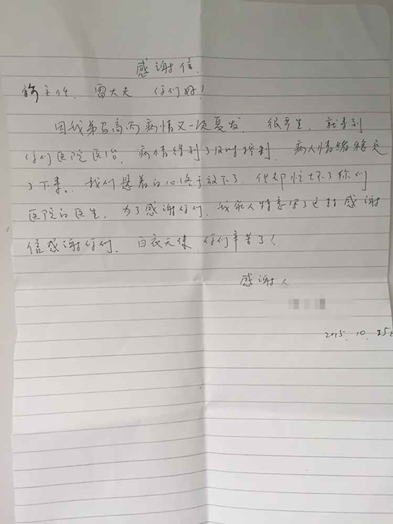 感谢信
徐主任、雷大夫 你们好!
因我弟 而病情又一次复发,很幸运,就来到
你们医院医治,病情得到了及时控制,病人情绪稳定
了下来。我们悬着的心终于放下了,但却忙坏了你们
医院的医生,为了感谢你们,我家人特意写了这封感谢
信感谢你们,白衣天使 你们辛苦了!
感谢人
2015.10.25